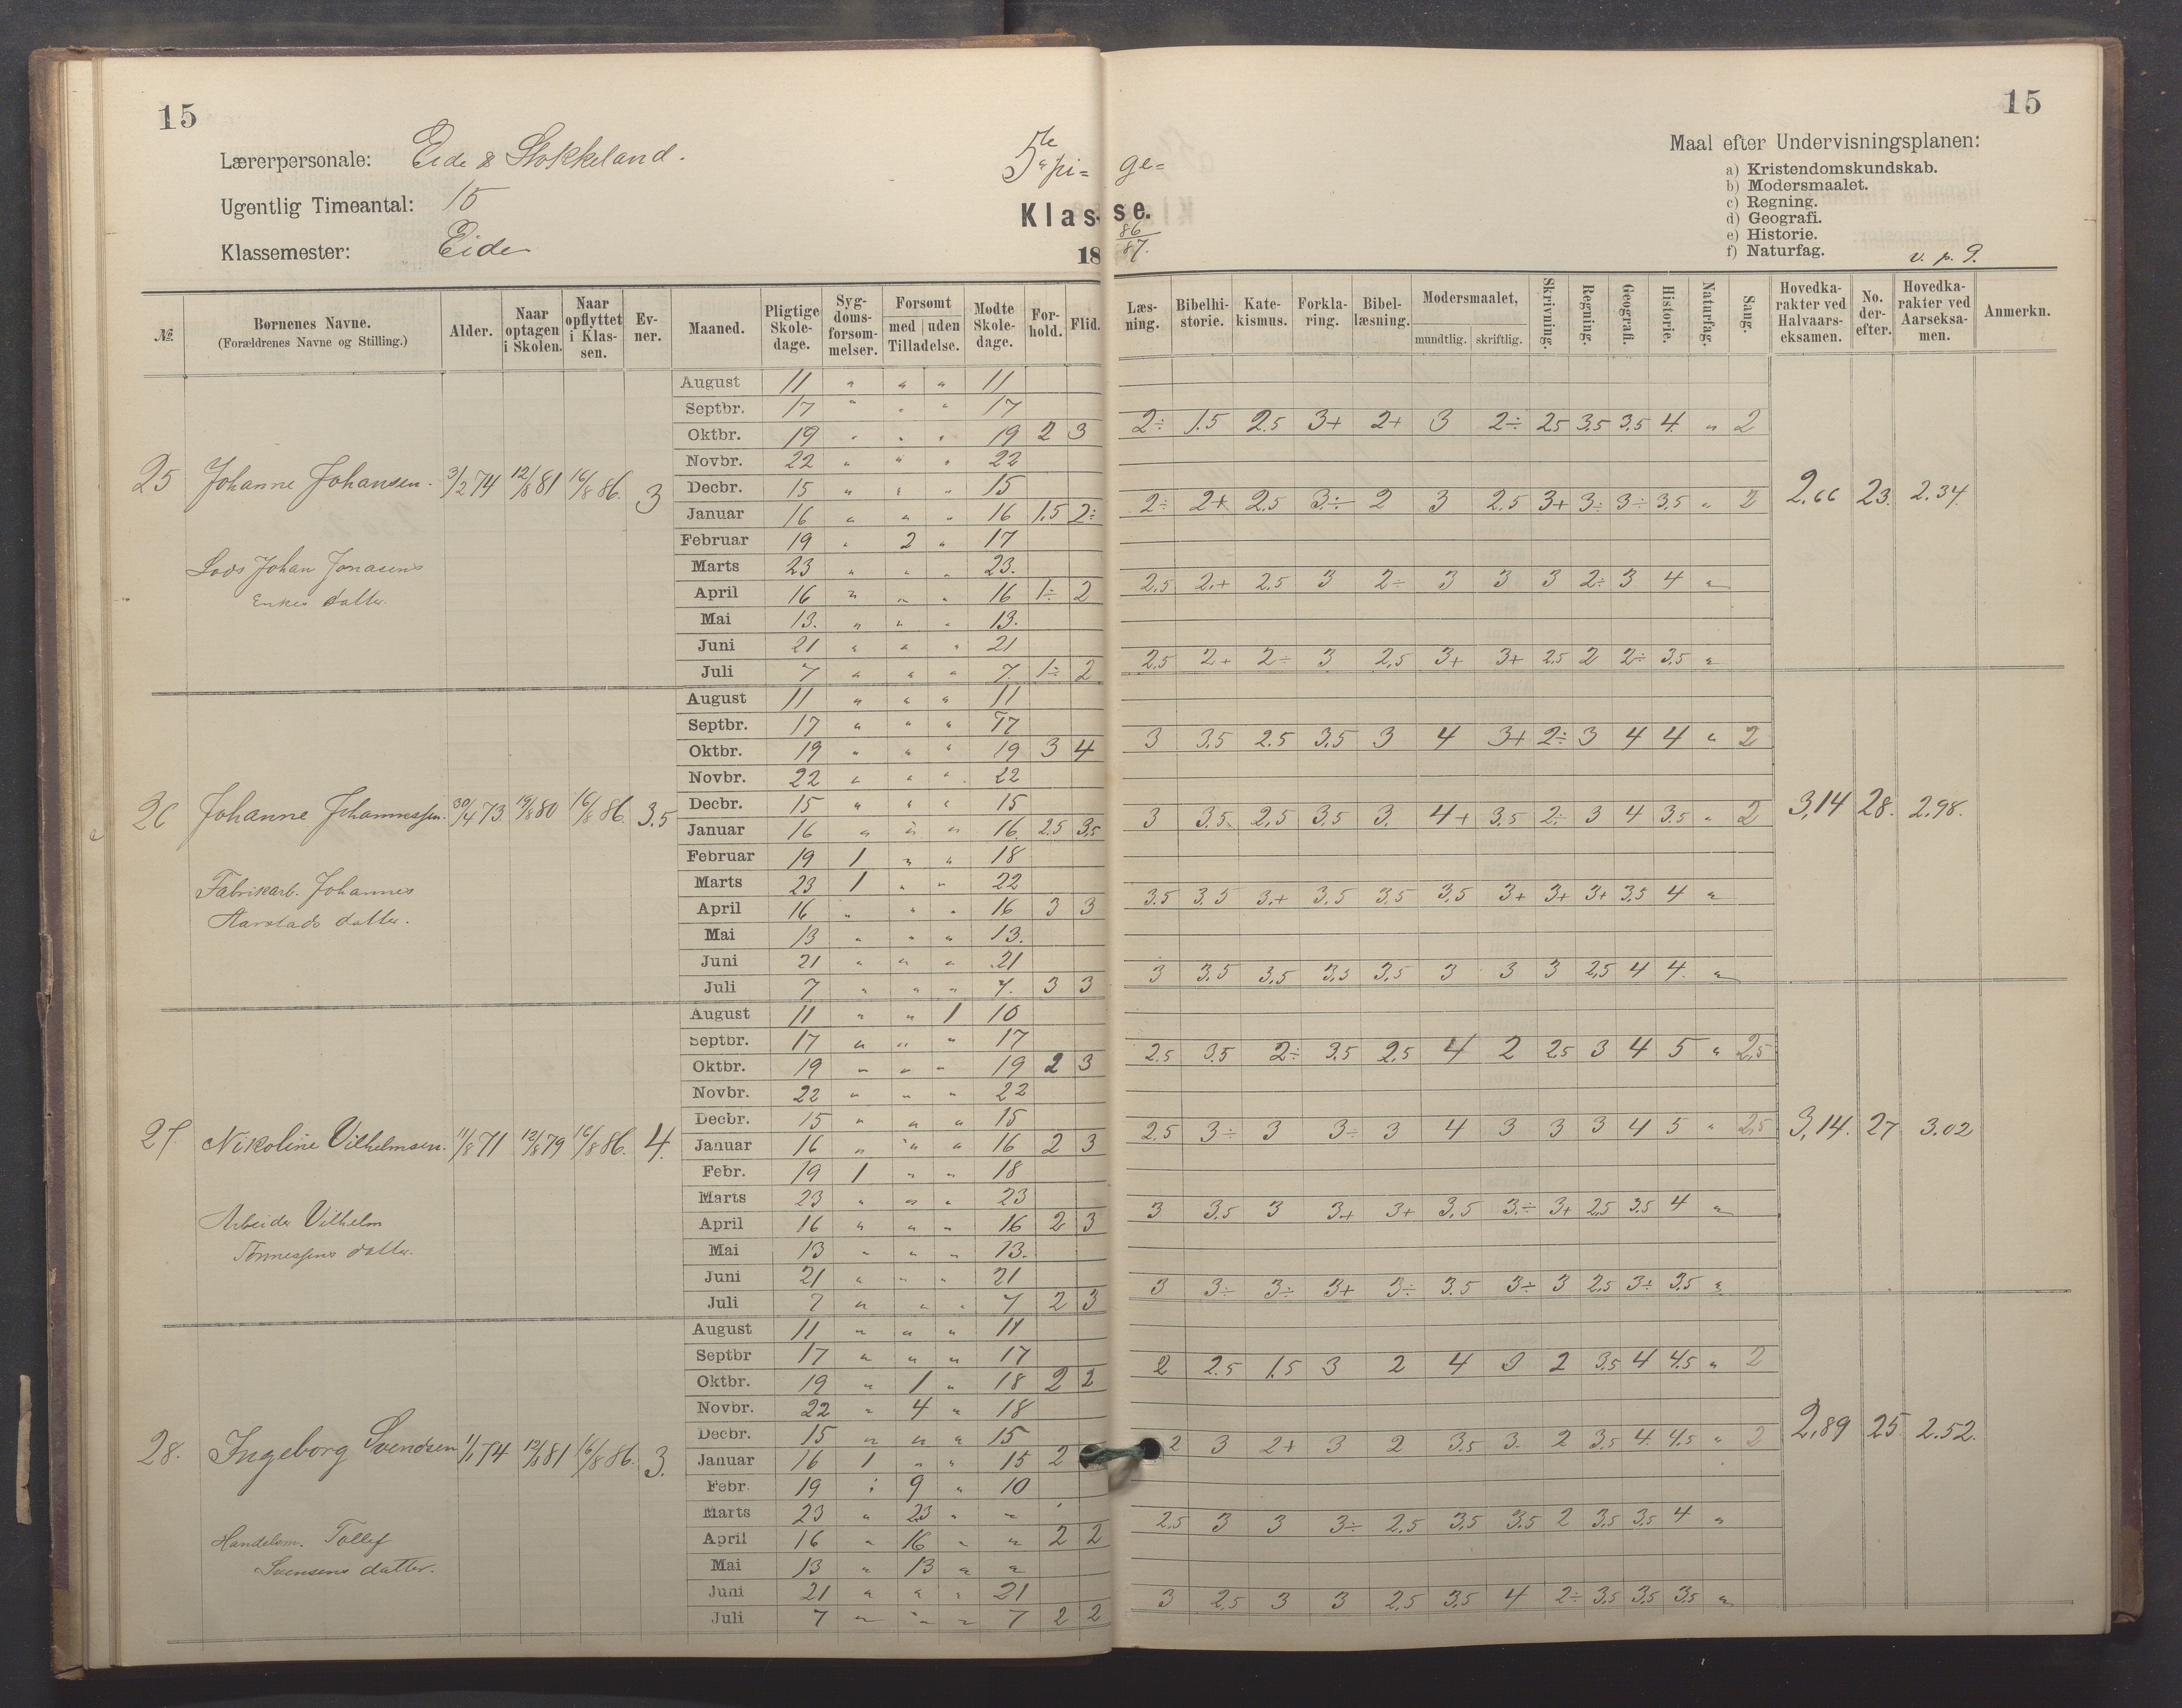 15
15
Lærerpersonale: Eide & Stokkeland.
Ugentlig Timeantal: 15
Klassemester: Eide
5te pi= ge=
Klasse.
18 86/87.
Maal efter Undervisningsplanen:
a) Kristendomskundskab.
b) Modersmaalet.
c) Regning.
d) Geografi.
e) Historie.
f) Naturfag.
v. p. 9.
№ Børnenes Navne. (Forældrenes Navne og Stilling.) Alder. Naar optagen i Skolen. Naar opflyttet i Klassen. Evner. Maaned. Pligtige Skoledage. Sygdomsforsømmelser. Forsømt med | uden Tilladelse. Mødte Skoledage. Forhold. Flid. Læsning. Bibelhistorie. Katekismus. Forklaring. Bibellæsning. Modersmaalet, mundtlig. skriftlig. Skrivning. Regning. Geografi. Historie. Naturfag. Sang. Hovedkarakter ved Halvaarseksamen. No. derefter. Hovedkarakter ved Aarseksamen. Anmerkn.
25 Johanne Johansen. 3/2 74 12/8 81 16/8 86. 3 2.66 23. 2.34.
Lods Johan Jonasens
Enkes datter.
August 11 " " " 11
Septbr. 17 " " " 17
Oktbr. 19 " " " 19 2 3 2÷ 1.5 2.5 3+ 2+ 3 2÷ 2.5 3.5 3.5 4. " 2
Novbr. 22 " " " 22
Decbr. 15 " " " 15
Januar 16 " " " 16 1.5 2÷ 2÷ 2+ 2.5 3÷ 2 3 2.5 3+ 3÷ 3÷ 3.5 " 2
Februar 19 " 2 " 17
Marts 23 " " " 23.
April 16 " " " 16 1÷ 2 2.5 2+ 2.5 3 2÷ 3 3 3 2÷ 3 4 "
Mai 13. " " " 13.
Juni 21 " " " 21
Juli 7 " " " 7. 1÷ 2 2.5 2+ 2÷ 3 2.5 3+ 3+ 2.5 2 2÷ 3.5 "
26 Johanne Johannessen. 30/4 73. 19/8 80 16/8 86. 3.5 3,14 28. 2.98.
Fabrikarb. Johannes
Aarstads datter.
August 11 " " " 11
Septbr. 17 " " " 17
Oktbr. 19 " " " 19 3 4 3 3.5 2.5 3.5 3 4 3+ 2÷ 3 4 4 " 2
Novbr. 22 " " " 22
Decbr. 15 " " " 15
Januar 16 " " " 16. 2.5 3.5 3 3.5 2,5 3.5 3. 4+ 3.5 2÷ 3 4 3.5 " 2
Februar 19 1 " " 18
Marts 23 1 " " 22
April 16 " " " 16 3 3 3.5 3.5 3+ 3.5 3.5 3.5 3+ 3+ 3+ 3.5 4 "
Mai 13 " " " 13.
Juni 21 " " " 21
Juli 7 " " " 7. 3 3 3 3.5 3.5 3.5 3.5 3 3 3 2.5 4 4. "
27. Nikoline Vilhelmsen. 11/8 71 12/8 79 16/8 86. 4. 3,14. 27 3.02
Arbeider Vilhelm
Tønnessens datter.
August 11 " " 1 10
Septbr. 17 " " " 17
Oktbr. 19 " " " 19 2 3 2.5 3.5 2÷ 3.5 2.5 4 2 2.5 3 4 5 " 2,5
Novbr. 22 " " " 22
Decbr. 15 " " " 15
Januar 16 " " " 16 2 3 2.5 3÷ 3 3÷ 3 4 3 3 3 4 5 " 2,5
Febr. 19 1 " " 18
Marts 23 " " " 23
April 16 " " " 16 2 3 3 3.5 3 3+ 3+ 3.5 3÷ 3+ 2.5 3.5 4 "
Mai 13 " " " 13.
Juni 21 " " " 21
Juli 7 " " " 7 2 3 3 3÷ 3÷ 3+ 3÷ 3.5 3÷ 3 2.5 3÷ 3.5 "
28. Ingeborg Svendsen 1/1 74 12/8 81 16/8 86. 3. 2,89 25. 2.52.
Handelsm. Tollef
Svensens datter.
August 11 " " " 11
Septbr 17 " " " 17
Oktbr. 19 " 1 " 18 2 2 2 2.5 1.5 3 2 4 3 2 3.5 4 4.5 " 2
Novbr. 22 " 4 " 18
Decbr. 15 " " " 15
Januar 16 1 " " 15 2 2 3 2+ 3 2 3.5 3. 2 3.5 4. 4.5 " 2
Febr. 19 " 9 " 10
Marts 23 " 23 " "
April 16 " 16 " " 2 2 2.5 3 3 3÷ 2.5 3.5 3.5 2 3.5 3.5 4 "
Mai 13 " 13 " "
Juni 21 " " " 21
Juli 7 " " " 7 2 2 3 2.5 3 3 2.5 3.5 4 2÷ 3.5 3.5 3.5 "